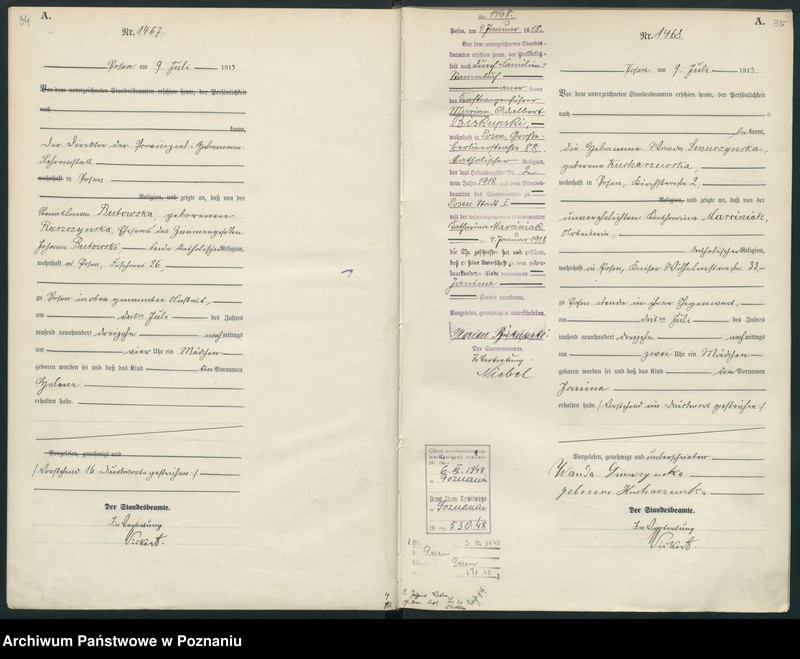 34
A.
Nr. 1467.
Posen am 9 Juli 1913
Vor dem unterzeichneten Standesbeamten erschien heute, der Persönlichkeit
nach
kannt,
Der Direktor der Provinzial-Hebammen
Lehranstalt
wohnhaft in Posen
Religion, und zeigte an, daß von der
Stanislawa Butowska, geborenen
Ruszczynska, Ehefrau des Zimmergesellen
Johann Butowski, beide katholischer Religion,
wohnhaft in Posen, Fischerei 26,
zu Posen in oben genannter Anstalt,
am dritten Juli des Jahres
tausend neunhundert dreizehn nachmittags
um vier Uhr ein Mädchen
geboren worden sei und daß das Kind den Vornamen
Helene
erhalten habe.
Vorgelesen, genehmigt und
(Vorstehend 16 Druckworte gestrichen:)
Der Standesbeamte.
In Vertretung
Vickert.
Nr. 1468.
Posen, am 4 Januar 1918.
Vor dem unterzeichneten Standes-
beamten erschien heute, der Persönlich-
keit nach durch Familien-
Stammbuch
kannt
der
Marian Adalbert
Biskupski,
wohnhaft in Posen, Große
Berlinerstraße 88
katholischer Religion,
Nr. 2
vom Jahre 1918 des Standes-
beamten des Standesamts
Posen Stadt I
Katharina Marciniak
am 4. Januar 1918
die Ehe geschlossen hat und erkläre,
Janina
hiermit anerkenne.
Vorgelesen, genehmigt und unterschrieben.
Marian Biskupski.
Der Standesbeamte.
In Vertretung
Niebel
6. XI. 1948
Poznaniu
Urząd Stanu Cywilnego
w Poznaniu
Nr 530/48
Posen
Posen
A.
35
Nr. 1468
Posen am 9 Juli 1913.
Vor dem unterzeichneten Standesbeamten erschien heute, der Persönlichkeit
nach
be kannt,
die Hebamme Wanda
geborene Kucharzewska,
wohnhaft in Posen, Kirchstraße 2,
Religion, und zeigte an, daß von der
unverehelichten Katharina Marciniak,
Arbeiterin,
katholischer Religion,
wohnhaft in Posen, Kaiser Wilhelmstraße 33,
zu Posen ebenda in ihrer Gegenwart,
am dritten Juli des Jahres
tausend neunhundert dreizehn nachmittags
um zwei Uhr ein Mädchen
geboren worden sei und daß das Kind den Vornamen
Janina
erhalten habe. (Vorstehend ein Druckwort gestrichen:)
Vorgelesen, genehmigt und unterschrieben
Wanda
geborene Kucharzewska
Der Standesbeamte.
In Vertretung
Vickert
Archiwum Państwowe w Poznaniu